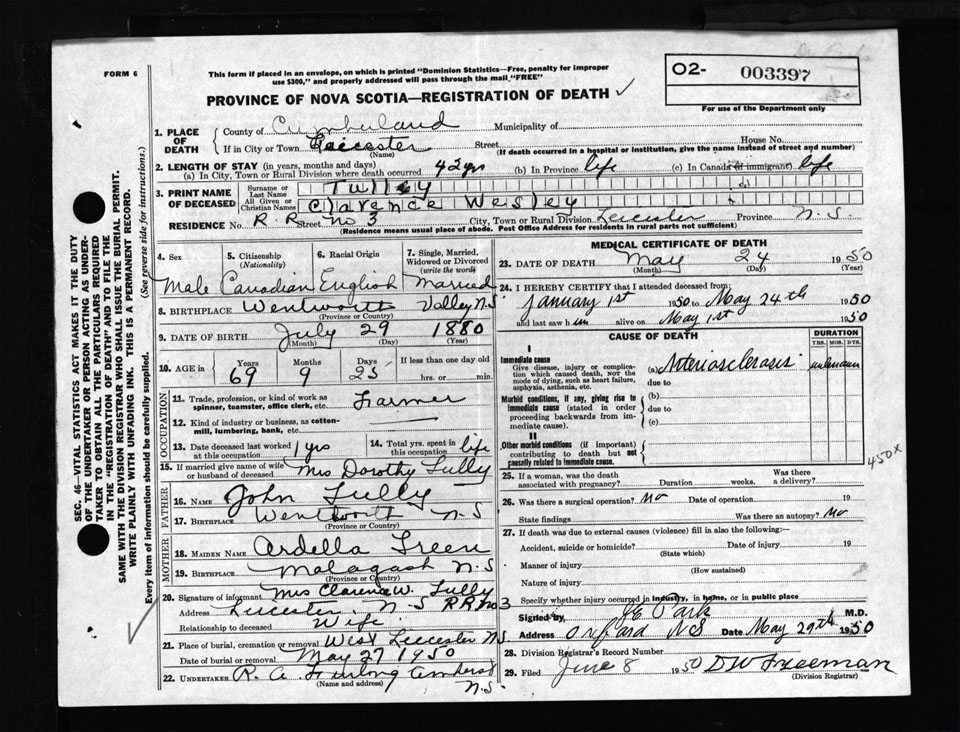 FORM 6
This form if placed in an envelope, on which is printed "Dominion Statistics—Free, penalty for improper
use $300," and properly addressed will pass through the mail "FREE"
PROVINCE OF NOVA SCOTIA—REGISTRATION OF DEATH ✓
O2- 003397
For use of the Department only
SEC. 46—VITAL STATISTICS ACT MAKES IT THE DUTY
OF THE UNDERTAKER OR PERSON ACTING AS UNDER-
TAKER TO OBTAIN ALL THE PARTICULARS REQUIRED
IN THE "REGISTRATION OF DEATH" AND TO FILE THE
SAME WITH THE DIVISION REGISTRAR WHO SHALL ISSUE THE BURIAL PERMIT.
WRITE PLAINLY WITH UNFADING INK. THIS IS A PERMANENT RECORD.
Every item of information should be carefully supplied. (See reverse side for instructions.)
1. PLACE OF DEATH
County of Cumberland Municipality of
If in City or Town Leicester Street House No.
(Name) (If death occurred in a hospital or institution, give the name instead of street and number)
2. LENGTH OF STAY (in years, months and days)
(a) In City, Town or Rural Division where death occurred 42 yrs (b) In Province life (c) In Canada (if immigrant) life
3. PRINT NAME OF DECEASED
Surname or Last Name Tulley
All Given or Christian Names Clarence Wesley
RESIDENCE No. R.R. Street no 3 City, Town or Rural Division Leicester Province N.S.
(Residence means usual place of abode. Post Office Address for residents in rural parts not sufficient)
4. Sex 5. Citizenship (Nationality) 6. Racial Origin 7. Single, Married, Widowed or Divorced (write the word)
Male Canadian English Married
8. BIRTHPLACE Wentworth Valley N.S.
(Province or Country)
9. DATE OF BIRTH July 29 1880
(Month) (Day) (Year)
10. AGE in Years Months Days If less than one day old
69 9 25 hrs. or min.
OCCUPATION
11. Trade, profession, or kind of work as
spinner, teamster, office clerk, etc. Farmer
12. Kind of industry or business, as cotton-
mill, lumbering, bank, etc.
13. Date deceased last worked at this occupation 1 yrs 14. Total yrs. spent in this occupation life
15. If married give name of wife
or husband of deceased Mrs Dorothy Tully
FATHER
16. NAME John Tully
17. BIRTHPLACE Wentworth N.S
(Province or Country)
MOTHER
18. MAIDEN NAME Ardella Treen
19. BIRTHPLACE Malagash N.S
(Province or Country)
20. Signature of informant Mrs Clarence W. Tully
Address Leicester N-S RR no 3
Relationship to deceased Wife
21. Place of burial, cremation or removal West Leicester N.S
Date of burial or removal May 27 1950
22. UNDERTAKER R. A. Furlong Amherst
(Name and address) N.S.
MEDICAL CERTIFICATE OF DEATH
23. DATE OF DEATH May 24 1950
(Month) (Day) (Year)
24. I HEREBY CERTIFY that I attended deceased from:
January 1st 1950 to May 24th 1950
and last saw him alive on May 1st 1950
CAUSE OF DEATH DURATION
YRS. MOS. DYS.
I
Immediate cause
Give disease, injury or complica-
tion which caused death, not the
mode of dying, such as heart failure,
asphyxia, asthenia, etc.
(a) Arteriosclerosis unknown
due to
Morbid conditions, if any, giving rise to
immediate cause (stated in order
proceeding backwards from im-
mediate cause).
(b)
due to
(c)
II
Other morbid conditions (if important)
contributing to death but not
causally related to immediate cause.
450x
25. If a woman, was the death
associated with pregnancy? Duration weeks. Was there a delivery?
26. Was there a surgical operation? No Date of operation 19
State findings Was there an autopsy? No
27. If death was due to external causes (violence) fill in also the following:—
Accident, suicide or homicide? Date of injury 19
(State which)
Manner of injury
(How sustained)
Nature of injury
Specify whether injury occurred in industry, in home, or in public place
Signed by M.D.
Address N S Date May 29th 1950
28. Division Registrar's Record Number
29. Filed June 8 1950 D W Freeman
(Division Registrar)